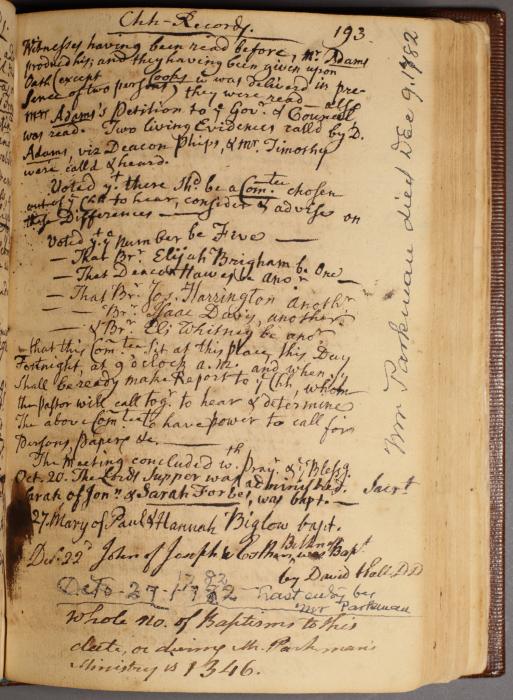 Chh-Records. 193.
Witnesses having been read before, Mr. Adams
produced his; and they having been given upon
Oath (except  was deliverd in pre-
sence of two persons) they were read — also
Mrs Adams's Petition to ye Govr. & Council
was read. Two living Evidences calld by D.
Adams, viz Deacon Phips, & Mr. Timothy
were calld & heard.
Voted yt there Shd. be a Comtee chosen
out of ye Chh to hear, consider & advise on
these Differences —
Voted yt ye Number be Five —
— That Br. Elijah Brigham be One —
— That Deacon Hawes be anor
— That Br. Jos. Harrington anothr
— Br. Isaac Davis, another.
— & Br. Eli Whitney be anor.
— that this Comtee Sit at this place, this Day
Fortnight, at 9 o'clock a.m. and when they
Shall be ready make Report to ye Chh, whom
the pastor will call togr. to hear & determine
The above Comtee to have power to call for
Persons papers &c. —
The Meeting concluded wth. Prayr. & ye Blessg.
Oct. 20. The Lords Supper was administerd. Sacrt
Sarah of Jonn & Sarah Forbes, was bapt. —
27. Mary of Paul & Hannah Biglow bapt.
Decr. 22d John of Joseph & Esther Belknap was Bapt
by David Hall. D D
Oct 27 - 1782 1782 Last entry by
Mr Parkman
Whole no. of Baptisms to this
date, or during Mr. Parkman's
Ministry is 1346.
Mr Parkman died Dec 9. 1782